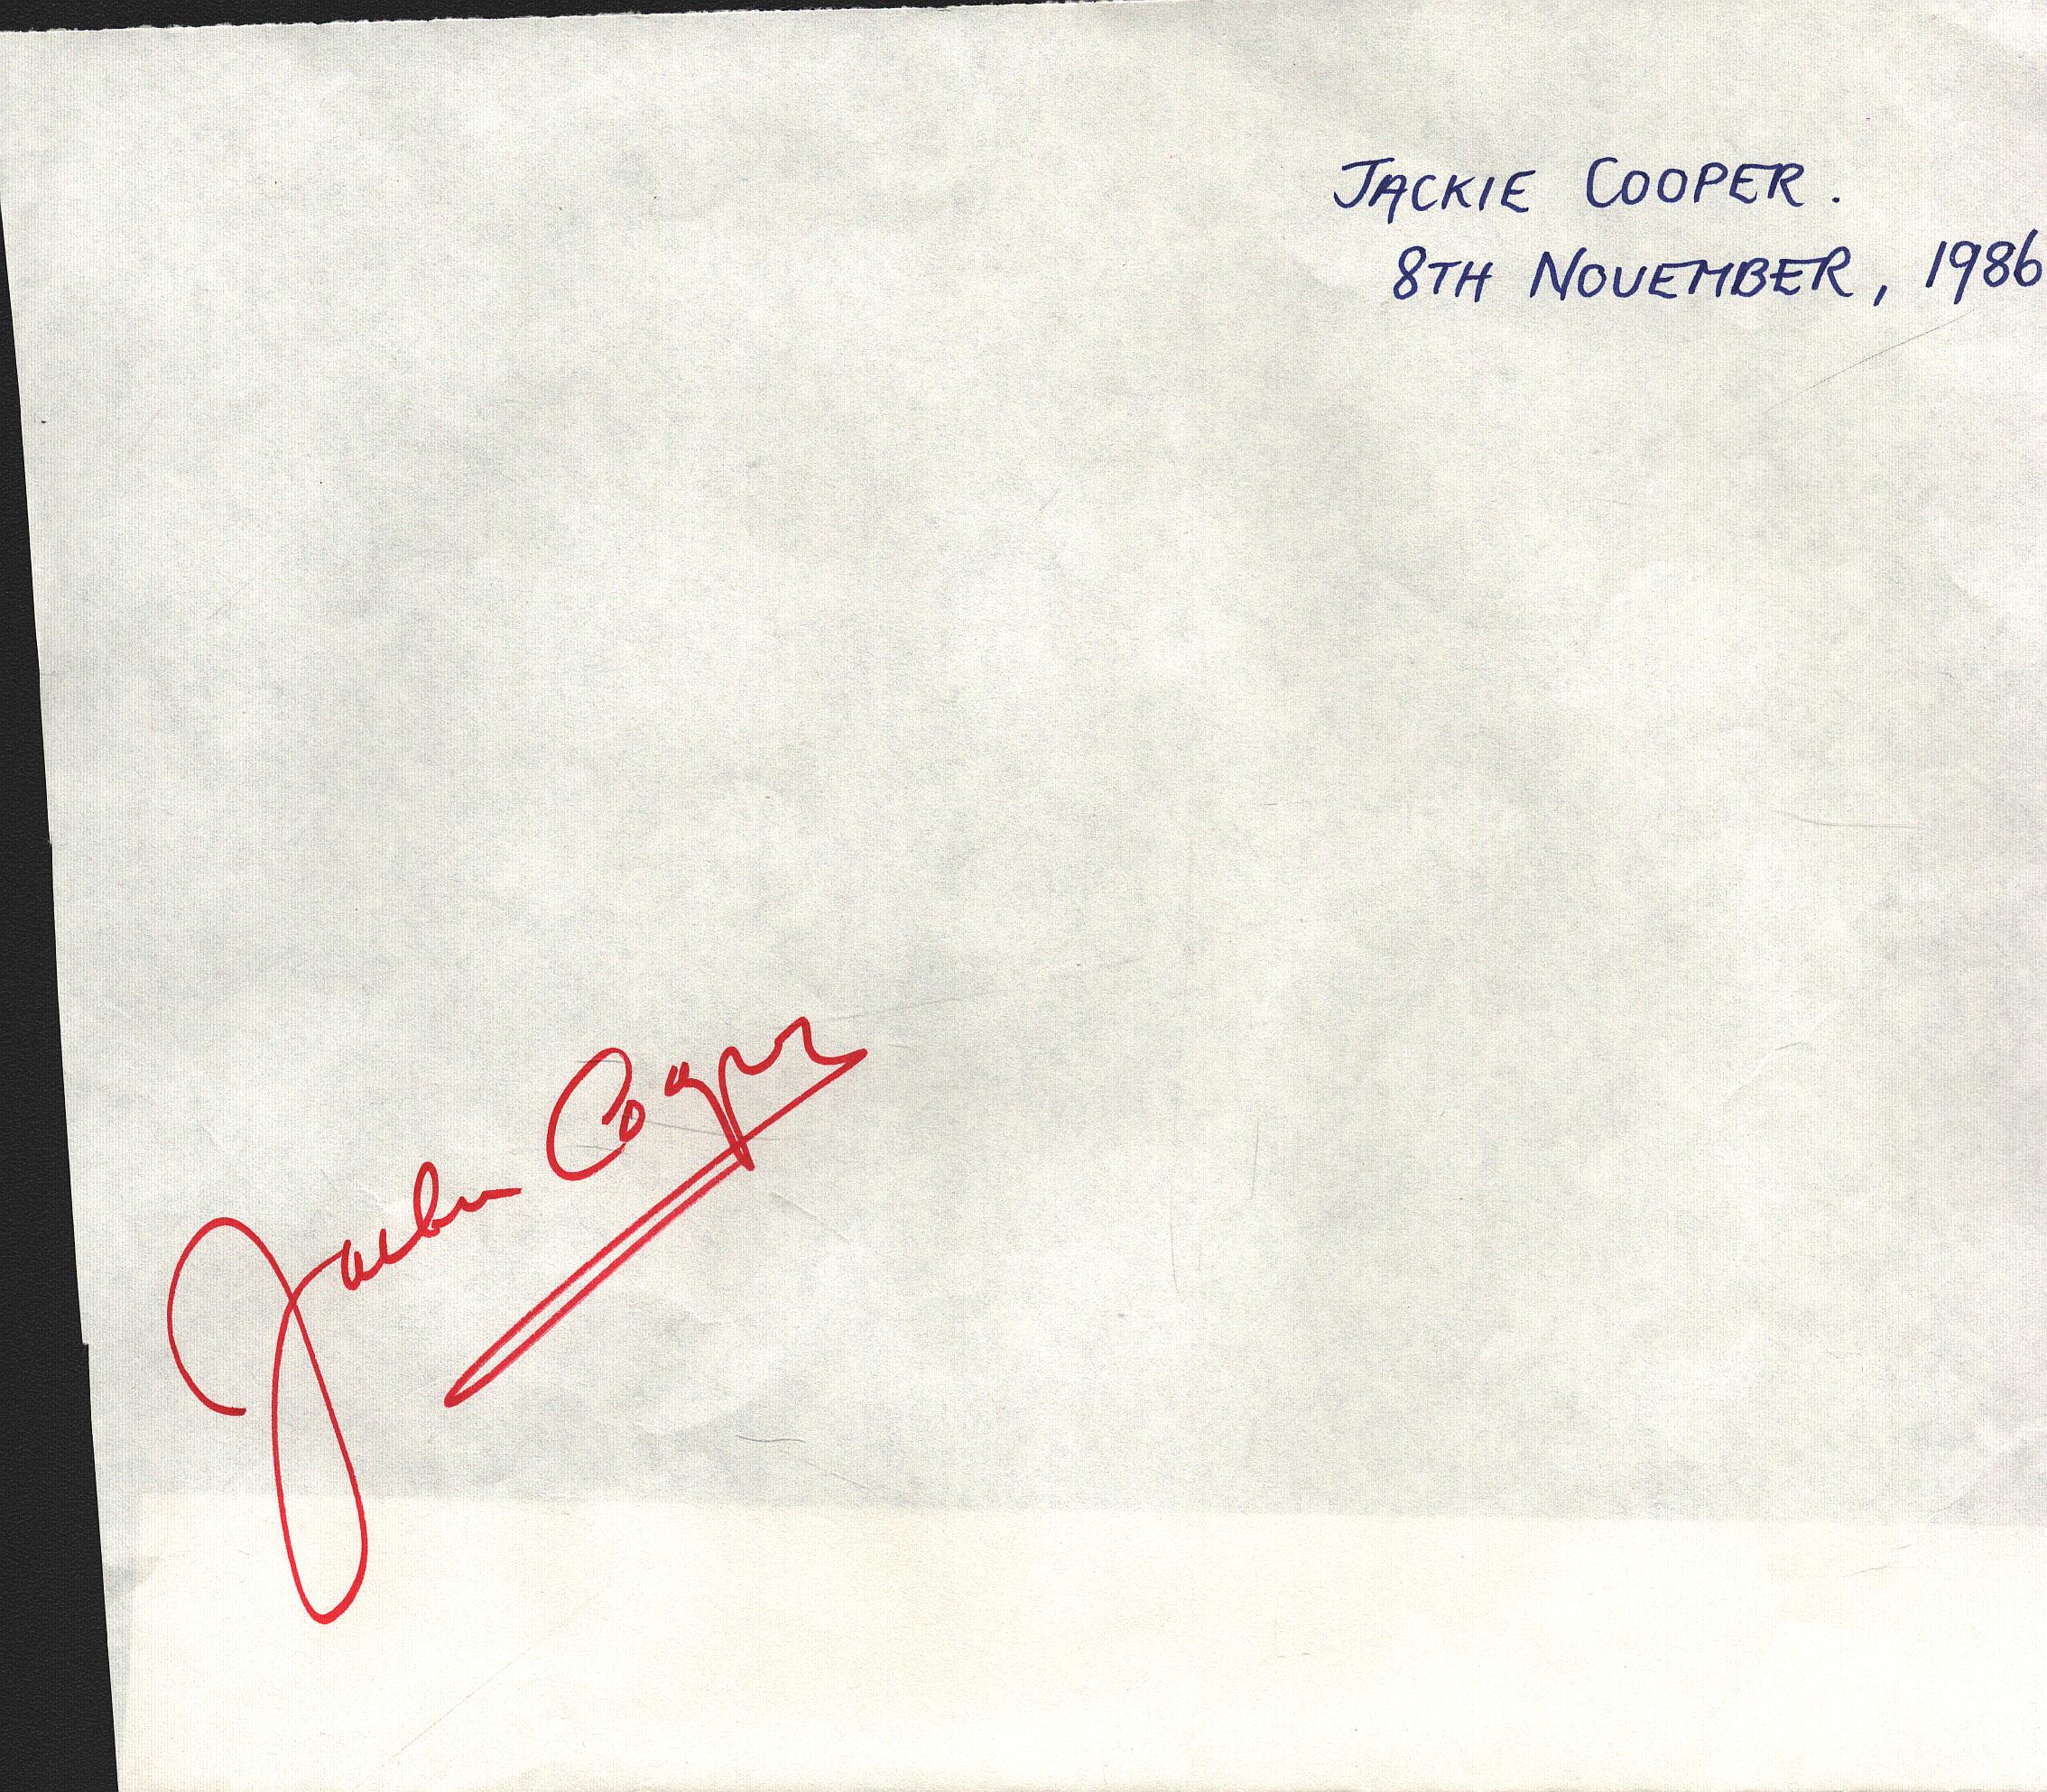 JACKIE COOPER.
8TH NOVEMBER, 1986
Jackie Cooper